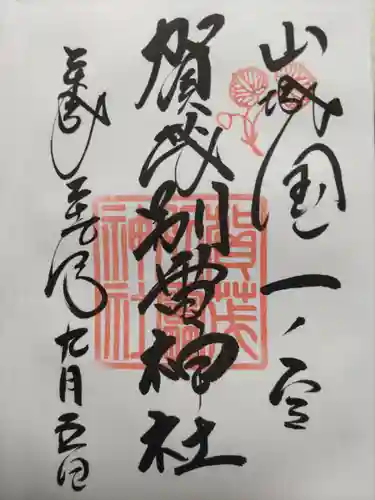 山城国一ノ宮
賀茂別雷神社
令和元年九月五日
賀茂別雷神社